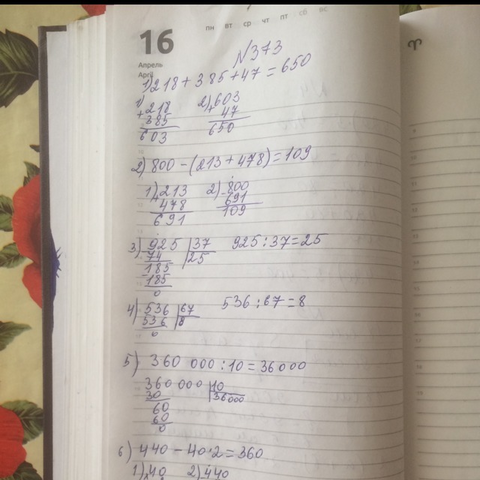 пн вт ср чт пт сб вс
16
Апрель
April
N373
1) 218 + 385 + 47 = 650
1) 2) 603
+218 47
385 650
603
2) 800 - (213 + 478) = 109
1) 213 2) 800
478 691
691 109
3) 925 |37 925 : 37 = 25
74 |25
185
185
0
4) 536 |67 536 : 67 = 8
536 |8
0
5) 360 000 : 10 = 36000
360 000 |10
30 |36000
60
60
0
6) 440 - 40·2 = 360
1) 40 2) 440